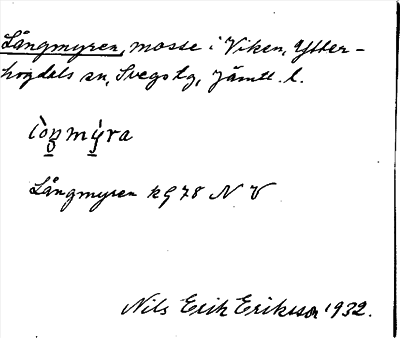 Långmyren, mosse i Viken, Ytter-
hogdals sn, Svegs tg, Jämtl. l.
Långmyren kg 78 N V
Nils Erik Eriksson 1932.